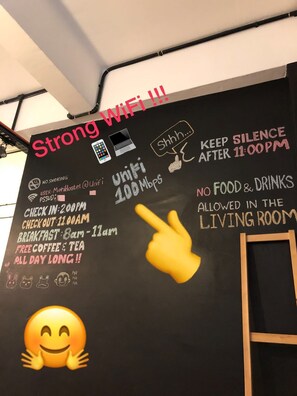 Strong WiFi !!!
NO SMOKING
Shhh...
KEEP SILENCE
AFTER 11:00PM
unifi
100Mbps
CHECK IN: 2:00PM
CHECK OUT: 11:00AM
BREAKFAST: 8am - 11am
FREE COFFEE & TEA
ALL DAY LONG!!
NO FOOD & DRINKS
ALLOWED IN THE
LIVING ROOM